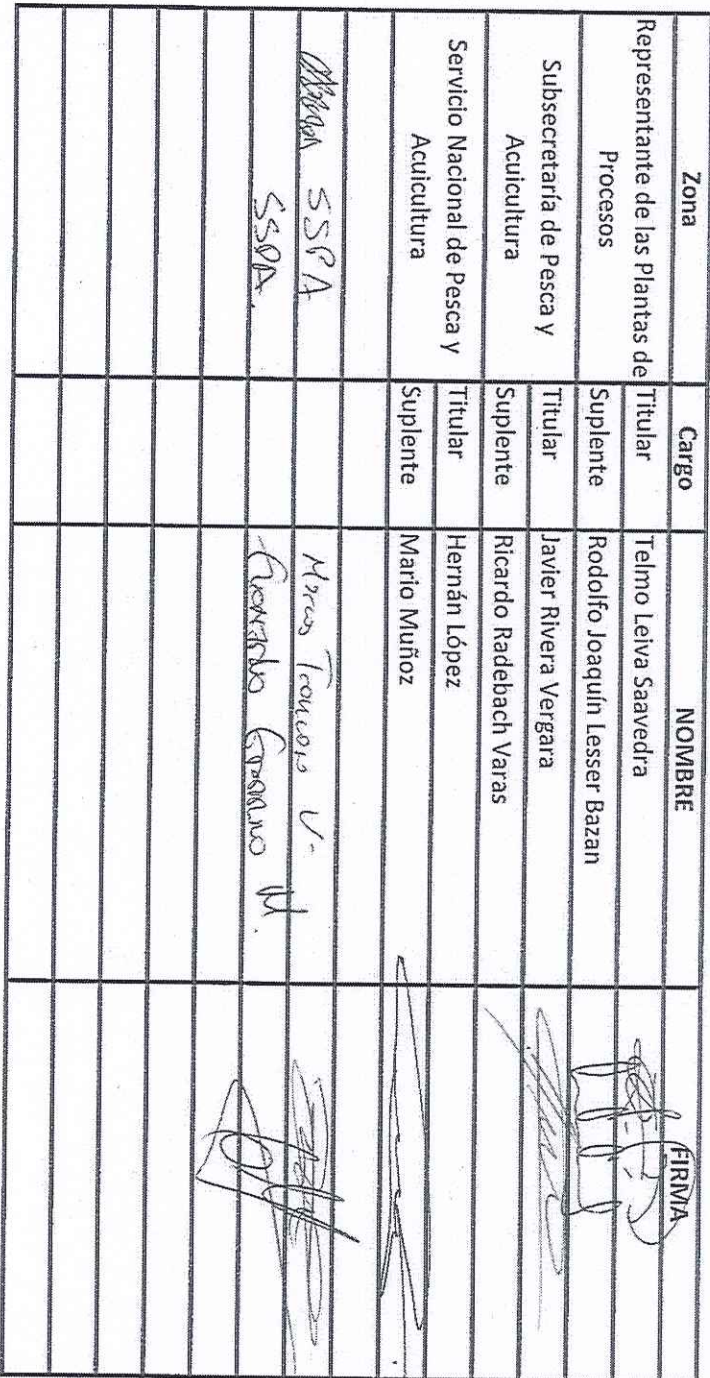 Zona Cargo NOMBRE FIRMA
Representante de las Plantas de Procesos Titular Telmo Leiva Saavedra
Suplente Rodolfo Joaquín Lesser Bazan
Subsecretaría de Pesca y Acuicultura Titular Javier Rivera Vergara
Suplente Ricardo Radebach Varas
Servicio Nacional de Pesca y Acuicultura Titular Hernán López
Suplente Mario Muñoz
SSPA Marcos Troncoso V.
SSPA. M.